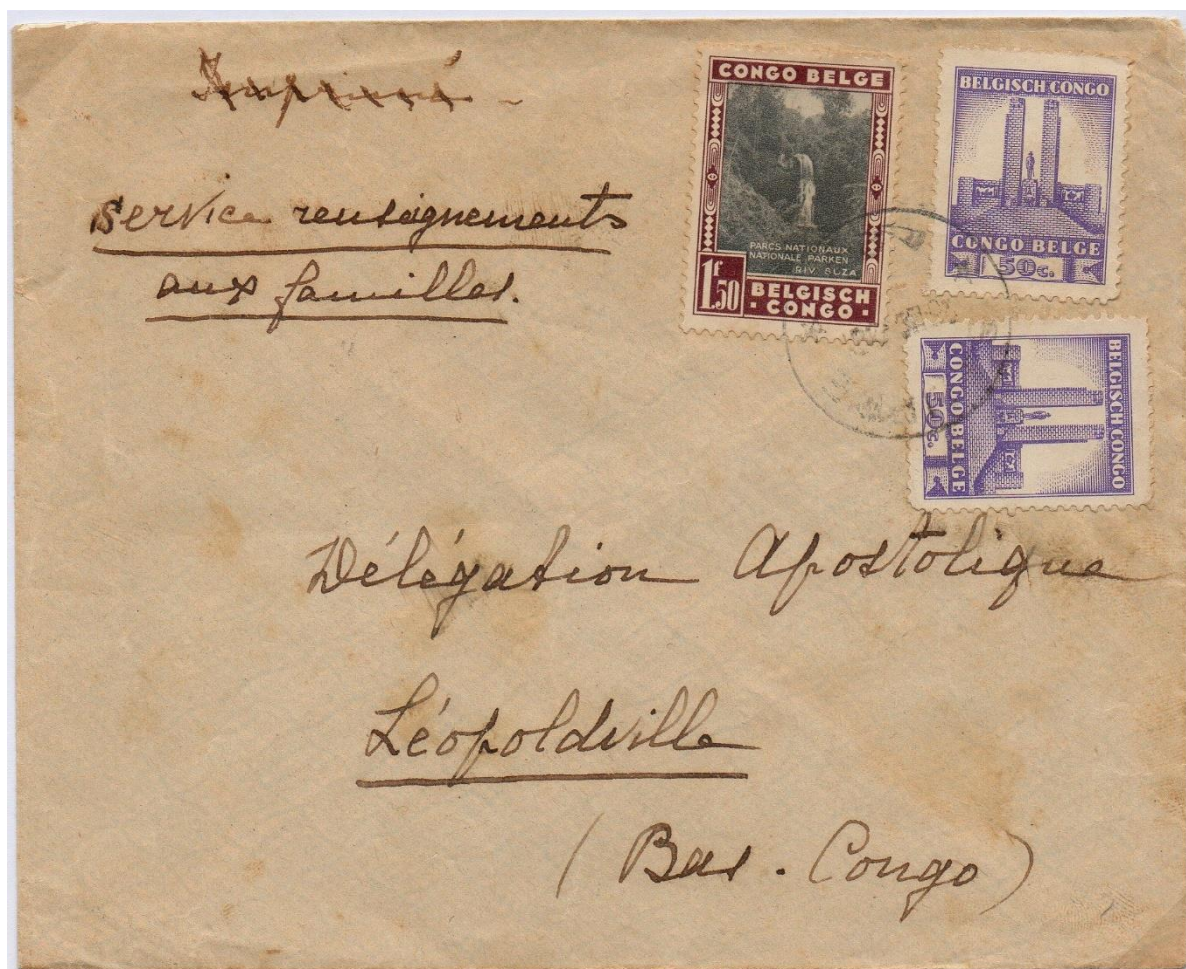 Imprimé
Service renseignements
aux familles.
CONGO BELGE
PARCS NATIONAUX
NATIONALE PARKEN
RIV. SUZA
1f50
BELGISCH
· CONGO ·
BELGISCH CONGO
CONGO BELGE
50c.
BELGISCH CONGO
CONGO BELGE
50c.
Délégation Apostolique
Léopoldville
(Bas-Congo)